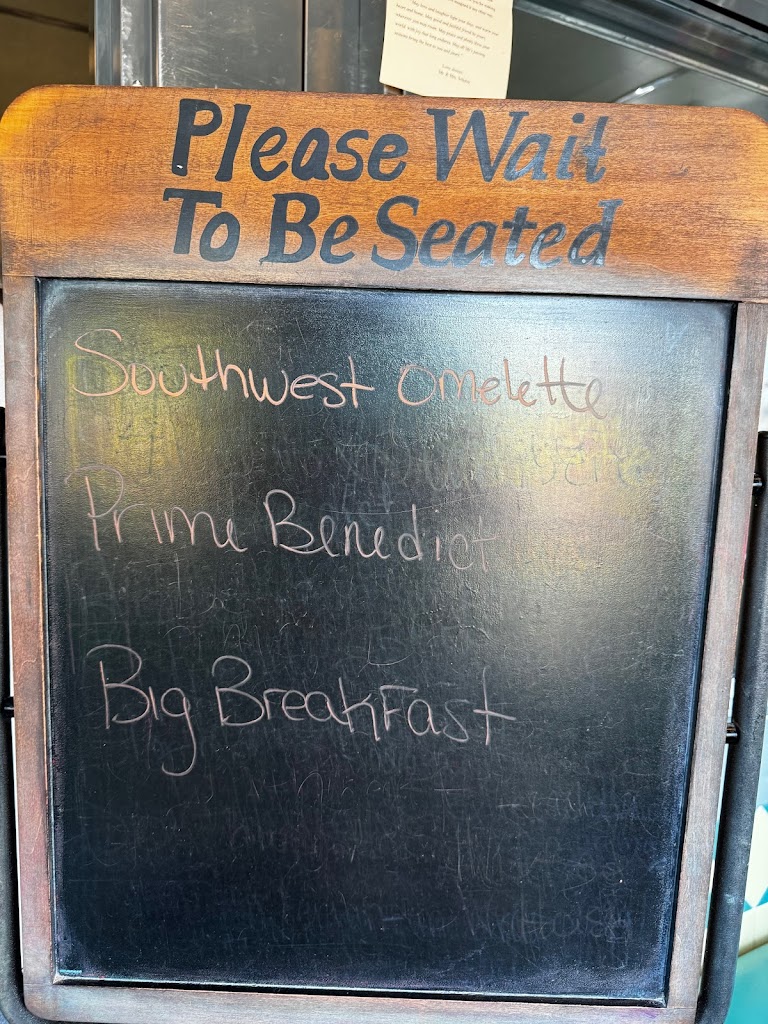 Please Wait
To Be Seated
Southwest Omelette
Prime Benedict
Big Breakfast